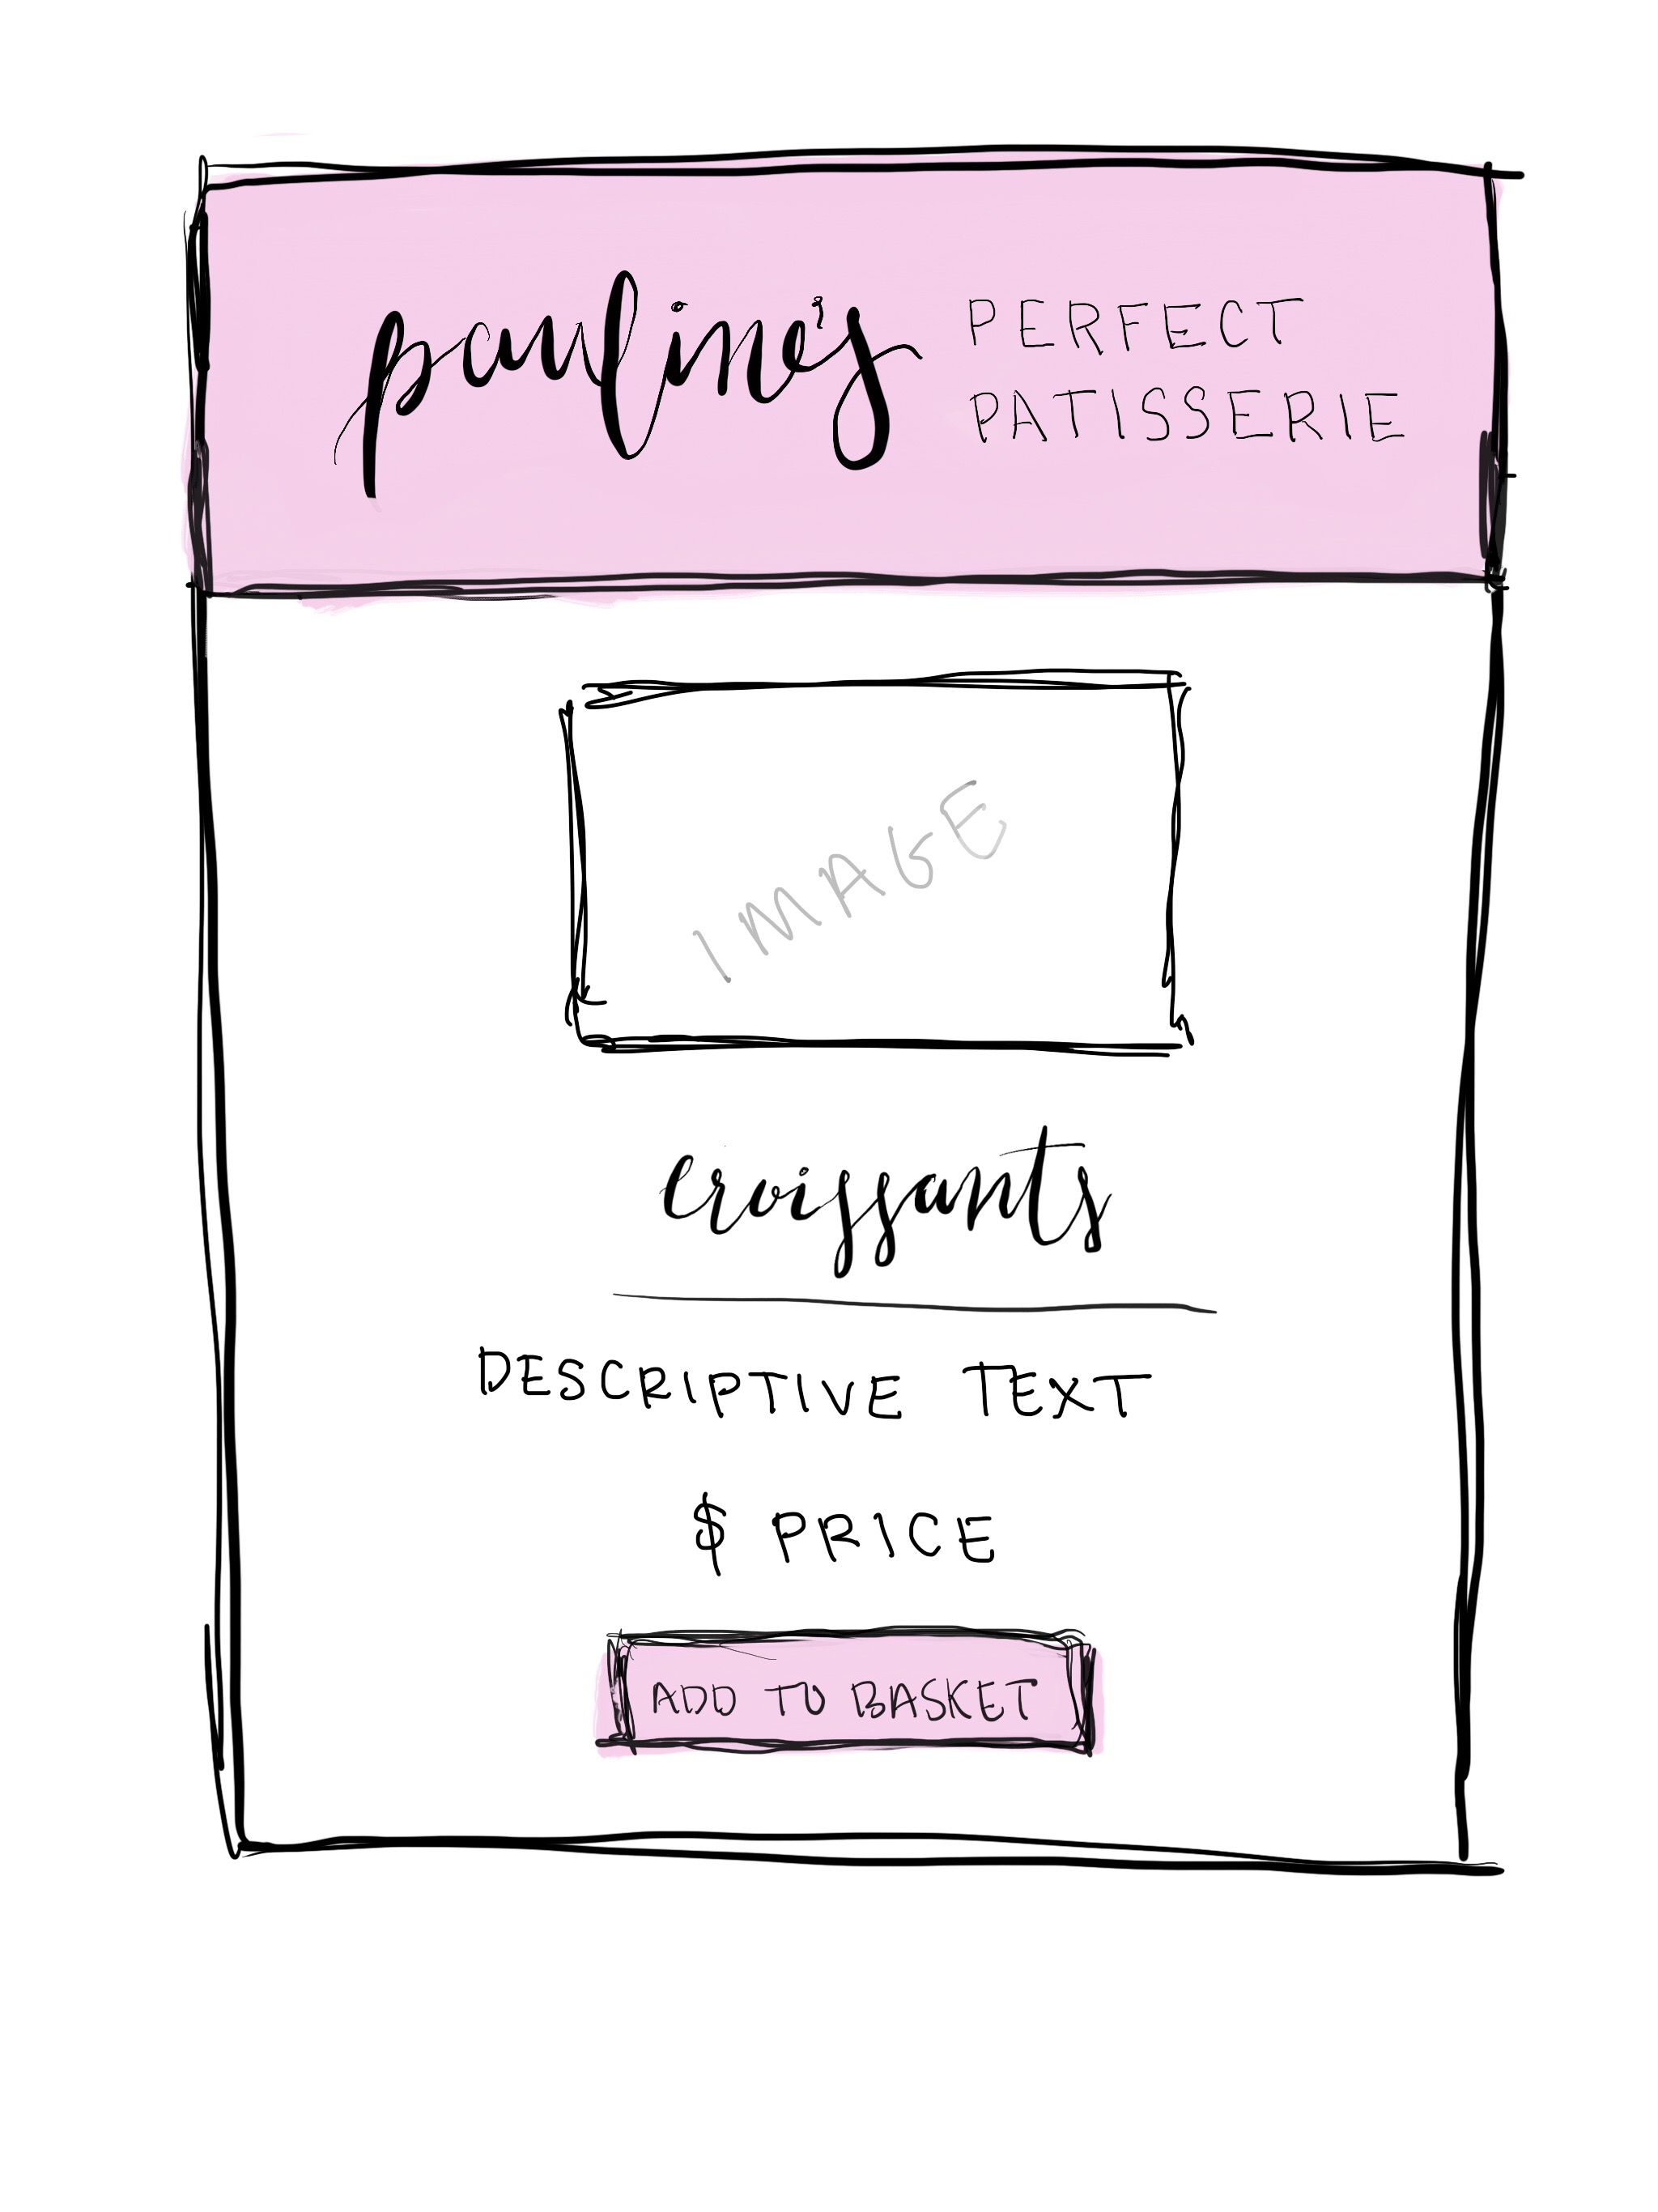 pauline's
PERFECT
PATISSERIE
IMAGE
croissants
DESCRIPTIVE TEXT
$ PRICE
ADD TO BASKET